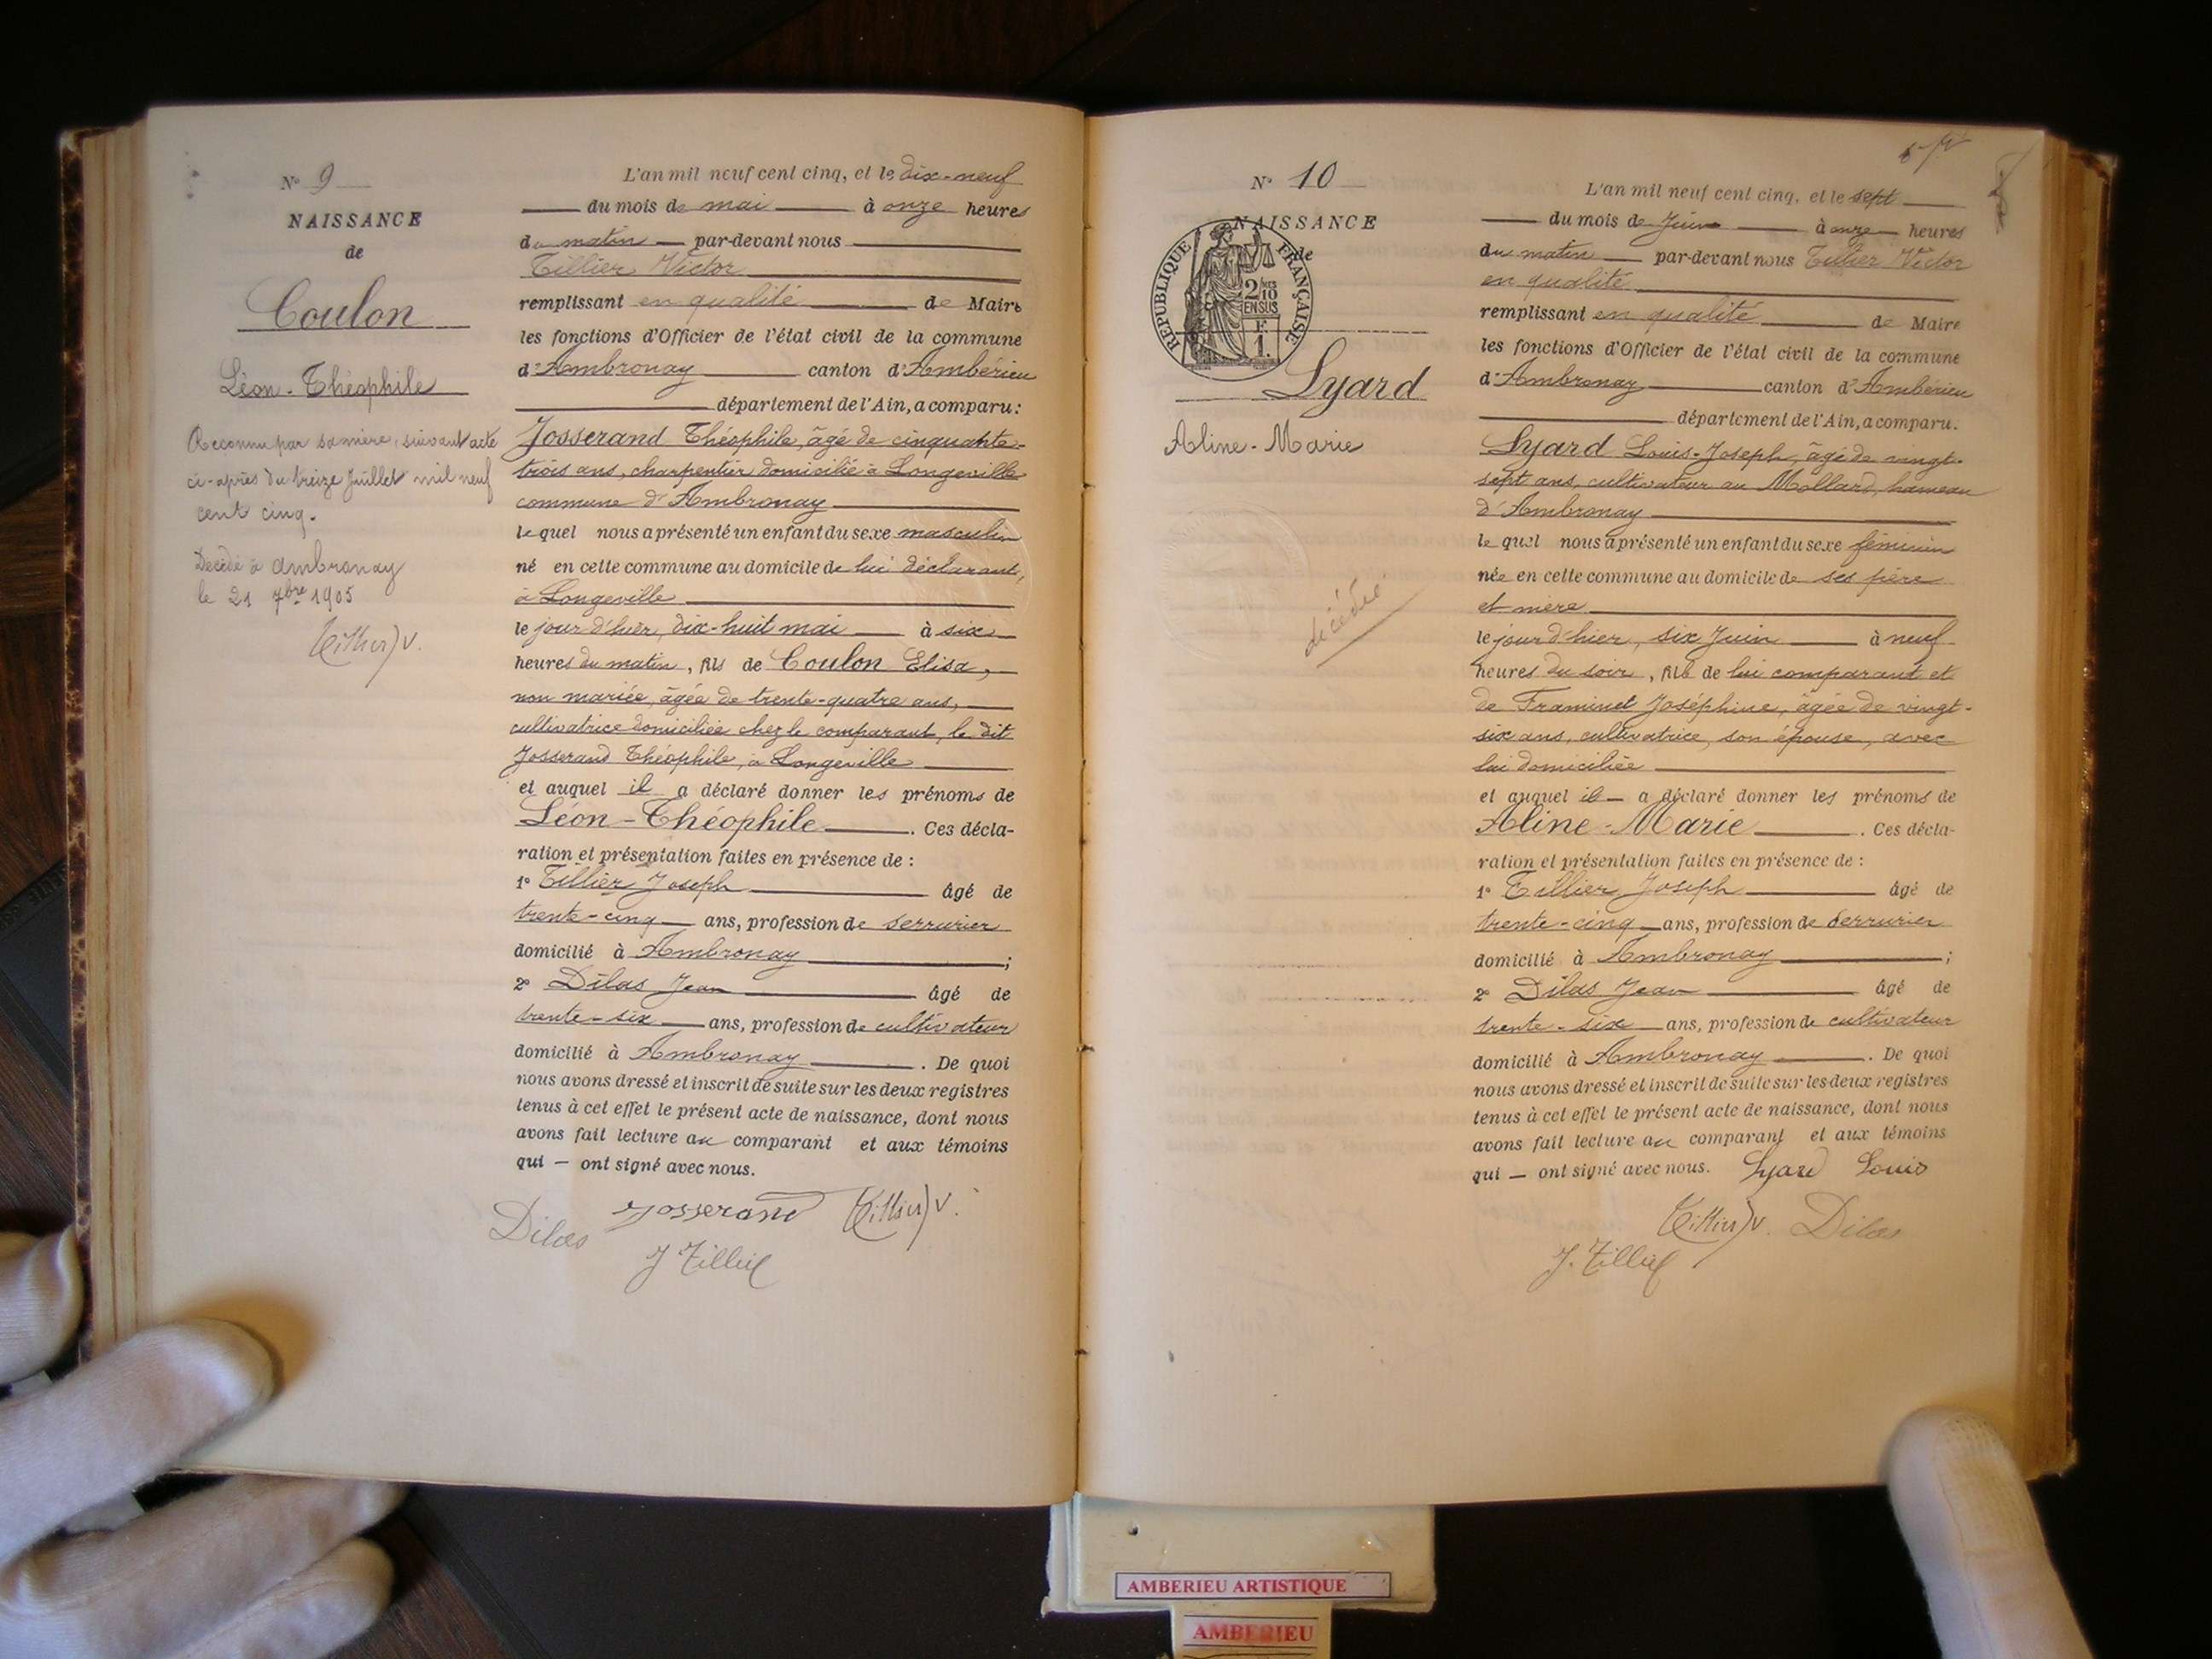 N° 9
NAISSANCE
de
Coulon
Léon-Théophile
Reconnu par sa mère, suivant acte
ci-après du treize Juillet mil neuf
cent cinq.
Décédé à Ambronay
le 21 7bre 1905
Tillier V.
L'an mil neuf cent cinq, et le dix-neuf
du mois de mai à onze heures
du matin par-devant nous
Tillier Victor
remplissant en qualité de Maire
les fonctions d'Officier de l'état civil de la commune
d'Ambronay canton d'Ambérieu
département de l'Ain, a comparu:
Josserand Théophile, âgé de cinquante-
trois ans, charpentier domicilié à Longeville
commune d'Ambronay
lequel nous a présenté un enfant du sexe masculin
né en cette commune au domicile de lui déclarant,
à Longeville
le jour d'hier, dix-huit mai à six
heures du matin, fils de Coulon Elisa,
non mariée, âgée de trente-quatre ans,
cultivatrice domiciliée chez le comparant, le dit
Josserand Théophile, à Longeville
et auquel il a déclaré donner les prénoms de
Léon-Théophile. Ces décla-
ration et présentation faites en présence de :
1° Tillier Joseph âgé de
trente-cinq ans, profession de serrurier
domicilié à Ambronay ;
2° Dilas Jean âgé de
trente-six ans, profession de cultivateur
domicilié à Ambronay. De quoi
nous avons dressé et inscrit de suite sur les deux registres
tenus à cet effet le présent acte de naissance, dont nous
avons fait lecture au comparant et aux témoins
qui — ont signé avec nous.
Dilas Josserand Tillier V.
J Tillier
N° 10
NAISSANCE
de
REPUBLIQUE FRANÇAISE
2/10 EN SUS
F.
1.
Lyard
Aline-Marie
décédée
L'an mil neuf cent cinq, et le sept
du mois de Juin à onze heures
du matin par-devant nous Tillier Victor
en qualité
remplissant en qualité de Maire
les fonctions d'Officier de l'état civil de la commune
d'Ambronay canton d'Ambérieu
département de l'Ain, a comparu.
Lyard Louis-Joseph, âgé de vingt-
sept ans, cultivateur au Mollard, hameau
d'Ambronay
lequel nous a présenté un enfant du sexe féminin
née en cette commune au domicile de ses père
et mère
le jour d'hier, six Juin à neuf
heures du soir, fille de lui comparant et
de Framinet Joséphine, âgée de vingt-
six ans, cultivatrice, son épouse, avec
lui domiciliée
et auquel il a déclaré donner les prénoms de
Aline-Marie. Ces décla-
ration et présentation faites en présence de :
1° Tillier Joseph âgé de
trente-cinq ans, profession de serrurier
domicilié à Ambronay ;
2° Dilas Jean âgé de
trente-six ans, profession de cultivateur
domicilié à Ambronay. De quoi
nous avons dressé et inscrit de suite sur les deux registres
tenus à cet effet le présent acte de naissance, dont nous
avons fait lecture au comparant et aux témoins
qui — ont signé avec nous. Lyard Louis
Tillier V. Dilas
J. Tillier
AMBERIEU ARTISTIQUE
AMBERIEU